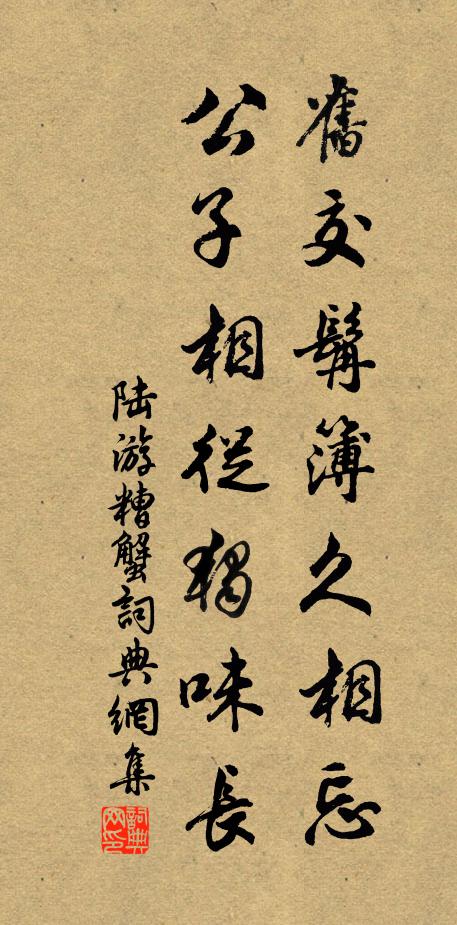 舊交髯簿久相忘
公子相從獨味長
陸游糟蟹詞典網集
詞典網印